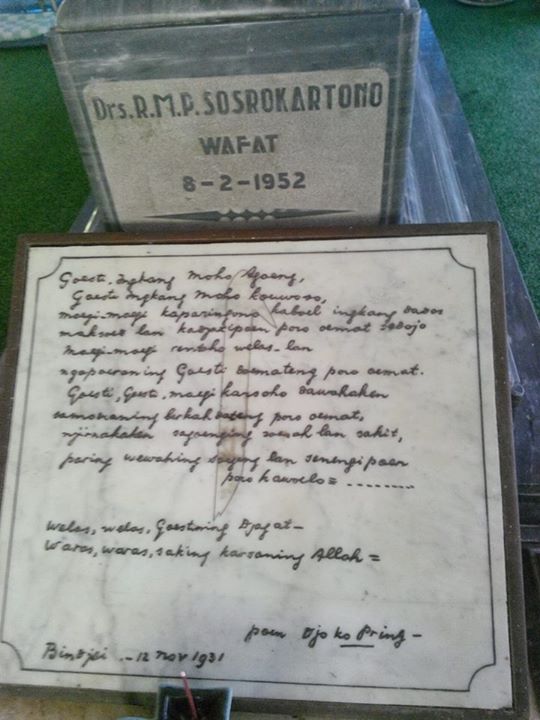 Drs.R.M.P. SOSROKARTONO
WAFAT
8-2-1952
Goesti ingkang Moho Agoeng,
Goesti ingkang moho kouwoso,
moegi-moegi kaparingono kaboel ingkang dados
maksoed lan kadjatipoen poro oemat sadojo
moegi-moegi rentoho welas-lan
ngapoeraning Goesti doemateng poro oemat.
Goesti, Goesti, moegi karsoho dawahaken
samoraning berkah dateng poro oemat,
njirnahaken sagoenging soesah lan sakit,
paring wewahing sageng lan senengipoen
poro kawoelo = ........
Welas, welas, Goestining Djagat-
Waras, waras, saking karsaning Allah =
poen Djoko Pring -
Bindjei .- 12 nov 1931